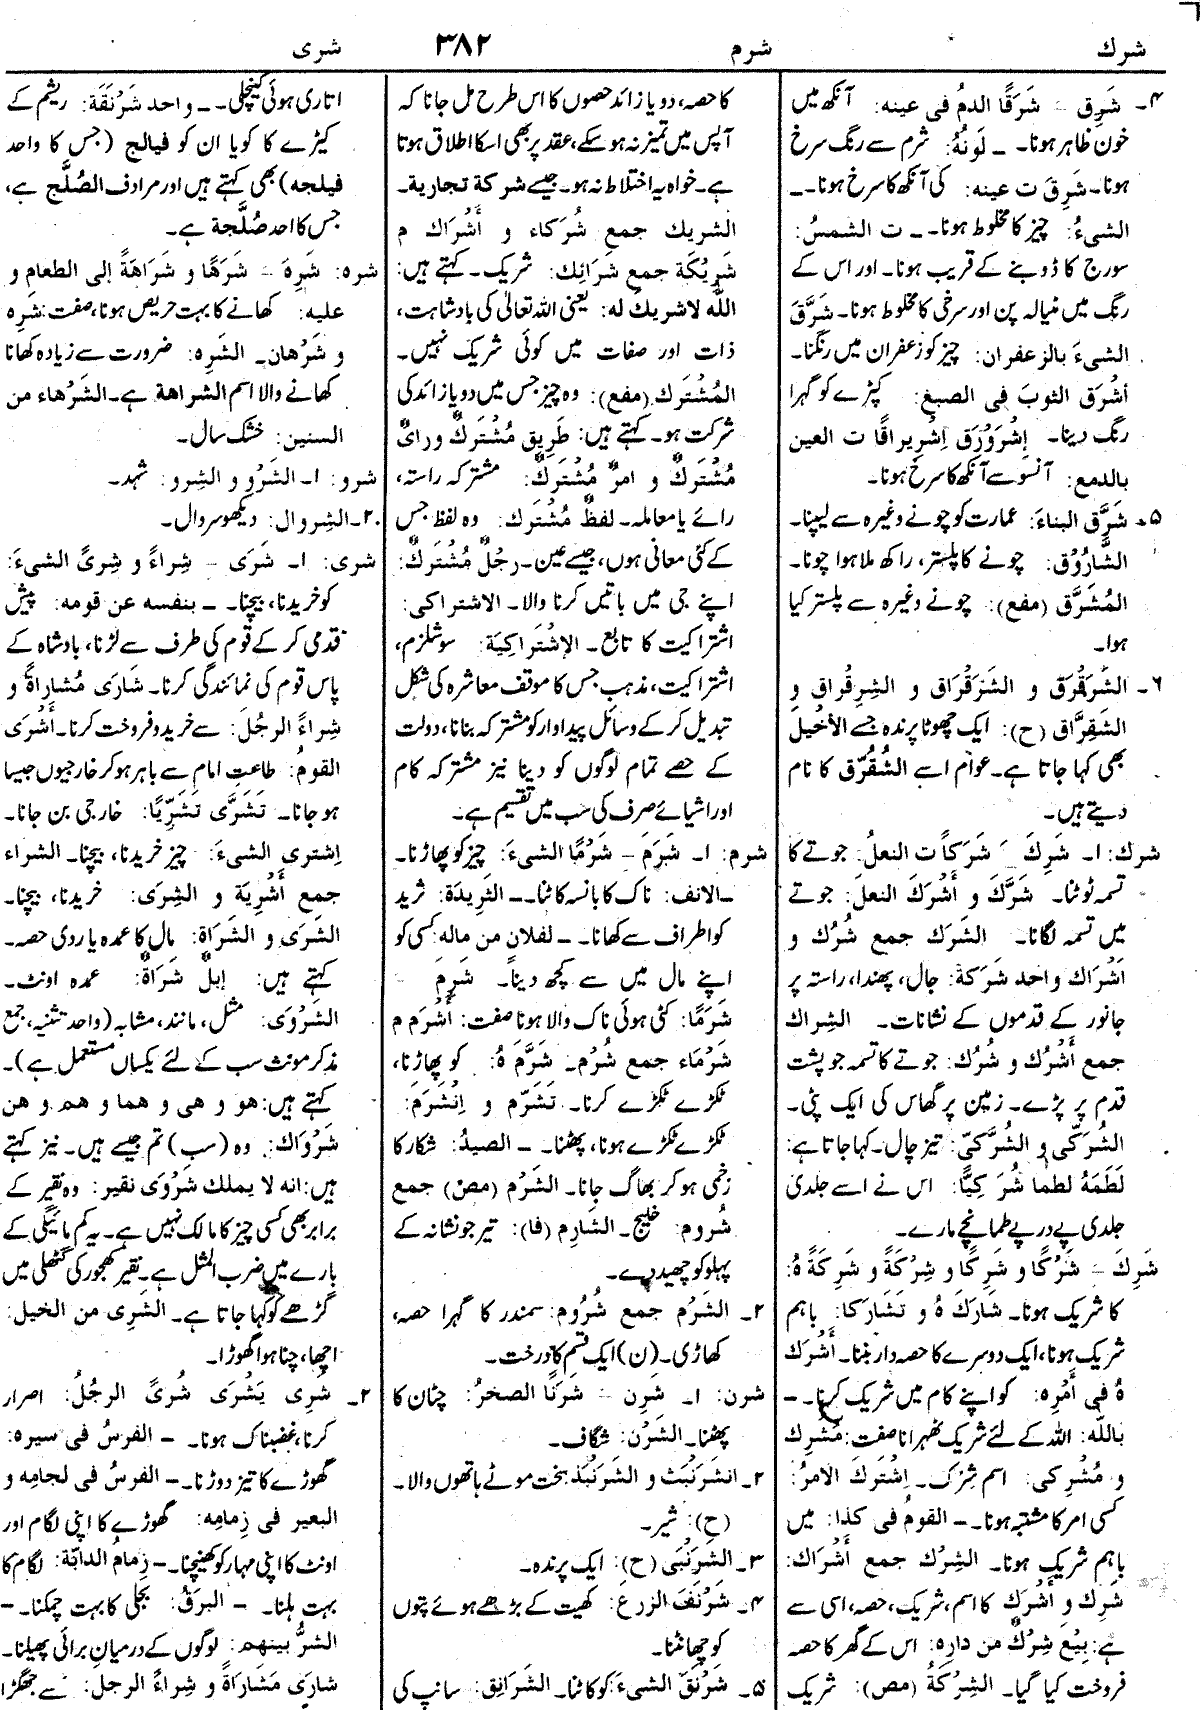 شرك
شرم
۳۸۲
شری
۴۔ شَرِق – شَرَقًا الدمُ فی عینه: آنکھ میں
خون ظاہر ہونا۔ – لَونُهُ: شرم سے رنگ سرخ
ہونا۔ شَرِقَ ت عینه: کی آنکھ کا سرخ ہونا۔ –
الشیءُ: چیز کا مخلوط ہونا۔ – ت الشمسُ:
سورج کا ڈوبنے کے قریب ہونا۔ اور اس کے
رنگ میں مٹیالہ پن اور سرخی کا مخلوط ہونا۔ شَرَّقَ
الشیءَ بالزعفران: چیز کو زعفران میں رنگنا۔
أشْرَق الثوبَ فی الصبغِ: کپڑے کو گہرا
رنگ دینا۔ اِشْرَوْرَق اِشْرِیراقًا ت العین
بالدمع: آنسو سے آنکھ کا سرخ ہونا۔
۵۔ شَرَّق البناءَ: عمارت کو چونے وغیرہ سے لیپنا۔
الشَّارُوْق: چونے کا پلستر، راکھ ملا ہوا چونا۔
المُشَرَّق (مفع): چونے وغیرہ سے پلستر کیا
ہوا۔
۶۔ الشَّرَقْرَق و الشَرَقْرَاق و الشِرِقْرَاق و
الشَقِرَّاق (ح): ایک چھوٹا پرندہ جسے الأخیل
بھی کہا جاتا ہے۔ عوام اسے الشُقُرَّق کا نام
دیتے ہیں۔
شرك: ۱۔ شَرِكَ – شَرَكاً ت النعلُ: جوتے کا
تسمہ ٹوٹنا۔ شَرَّكَ و أَشْرَكَ النعلَ: جوتے
میں تسمہ لگانا۔ الشَرَك جمع شُرُك و
أشْرَاك واحد شَرَكَة: جال، پھندا، راستہ پر
جانور کے قدموں کے نشانات۔ الشِراك
جمع أَشْرُك و شُرُك: جوتے کا تسمہ جو پشت
قدم پر پڑے۔ زمین پر گھاس کی ایک پٹی۔
الشُرَكّی و الشُرَّكَیّ: تیز چال۔ کہا جاتا ہے:
لَطَمَهُ لطما شُرَ كِیًّا: اس نے اسے جلدی
جلدی پے درپے طمانچے مارے۔
شَرِكَ – شَرْكًا و شَرِكًا و شِرْكَةً و شَرِكَةً هُ:
کا شریک ہونا۔ شَارَكَ هُ و تَشَارَكا: باہم
شریک ہونا، ایک دوسرے کا حصہ دار بننا۔ أَشْرَكَ
هُ فی أَمْرِه: کو اپنے کام میں شریک کرنا۔ –
باللّٰه: اللہ کے لئے شریک ٹھہرانا صفت: مُشْرِك
و مُشْرِكی: اسم شِرْک۔ اِشْتَرَكَ الأمرُ:
کسی امر کا مشتبہ ہونا۔ – القومُ فی كذا: میں
باہم شریک ہونا۔ الشِرْك جمع أَشْرَاك:
شَرِكَ و أَشْرَك کا اسم، شریک، حصہ، اسی سے
ہے: بِیْعَ شِرْكٌ من دارِه: اس کے گھر کا حصہ
فروخت کیا گیا۔ الشِرْكَةُ (مص): شریک
کا حصہ، دو یا زائد حصوں کا اس طرح مل جانا کہ
آپس میں تمیز نہ ہو سکے، عقد پر بھی اسکا اطلاق ہوتا
ہے۔ خواہ یہ اختلاط نہ ہو۔ جیسے شرکة تجاریة۔
الشریك جمع شُرَكاء و أَشْرَاك م
شَرِیْكَة جمع شَرَائِك: شریک۔ کہتے ہیں:
اللّٰه لاشریكَ له: یعنی اللہ تعالیٰ کی بادشاہت،
ذات اور صفات میں کوئی شریک نہیں۔
المُشْتَرَك (مفع): وہ چیز جس میں دو یا زائد کی
شرکت ہو۔ کہتے ہیں: طَرِیق مُشْتَرَكٌ ورایٌ
مُشْتَرَكٌ و امرٌ مُشْتَرَكٌ: مشترکہ راستہ،
رائے یا معاملہ۔ لفظٌ مُشْتَرَك: وہ لفظ جس
کے کئی معانی ہوں، جیسے عین۔ رجُلٌ مُشْتَرَكٌ:
اپنے جی میں باتیں کرنا والا۔ الاشتراكی:
اشتراکیت کا تابع۔ الإشْتَراكِیَة: سوشلزم،
اشتراکیت، مذہب جس کا موقف معاشرہ کی شکل
تبدیل کر کے وسائل پیداوار کو مشترکہ بنانا، دولت
کے حصے تمام لوگوں کو دینا نیز مشترکہ کام
اور اشیائے صرف کی سب میں تقسیم ہے۔
شرم: ۱۔ شَرَمَ – شَرْمًا الشیءَ: چیز کو پھاڑنا۔
–الانف: ناک کا بانسہ کاٹنا۔ – الثَرِیدَة: ثرید
کو اطراف سے کھانا۔ – لفلان من ماله: کسی کو
اپنے مال میں سے کچھ دینا۔ شَرِمَ –
شَرَمًا: کٹی ہوئی ناک والا ہونا صفت: أَشْرَم م
شَرْمَاء جمع شُرْم۔ شَرَّمَ هُ: کو پھاڑنا،
ٹکڑے ٹکڑے کرنا۔ تَشَرَّم و اِنْشَرَمَ:
ٹکڑے ٹکڑے ہونا، پھٹنا۔ – الصیدُ: شکار کا
زخمی ہو کر بھاگ جانا۔ الشَرْم (مص) جمع
شُروم: خلیج۔ الشارِم (فا): تیر جو نشانہ کے
پہلو کو چھید دے۔
۲۔ الشَرْم جمع شُرُوم: سمندر کا گہرا حصہ،
کھاڑی۔ (ن) ایک قسم کا درخت۔
شرن: ۱۔ شَرِن – شَرَنًا الصخرُ: چٹان کا
پھٹنا۔ الشَرْن: شگاف۔
۲۔ انشَرَنْبَث و الشَرَنْبَذ سخت موٹے ہاتھوں والا۔
(ح): شیر۔
۳۔ الشَرَنْبَی (ح): ایک پرندہ۔
۴۔ شَرْنَفَ الزرعَ: کھیت کے بڑھے ہوئے پتوں
کو چھانٹنا۔
۵۔ شَرْنَقَ الشیءَ کو کاٹنا۔ الشَرَانِق: سانپ کی
اتاری ہوئی کینچلی۔ – واحد شَرْنَقَة: ریشم کے
کیڑے کا کویا ان کو فیالج (جس کا واحد
فیلجه) بھی کہتے ہیں اور مرادف الصُلَّج ہے،
جس کا احد صُلَّجة ہے۔
شره: شَرِهَ – شَرَهًا و شَرَاهَةً إلی الطعامِ و
علیه: کھانے کا بہت حریص ہونا، صفت: شَرِه
و شَرْهان۔ الشَرِه: ضرورت سے زیادہ کھانا
کھانے والا اسم الشراهة ہے۔ الشَرْهاء من
السنین: خشک سال۔
شرو: ۱۔ الشَرْو و الشِرو: شہد۔
۲۔ الشِروال: دیکھو سروال۔
شری: ۱۔ شَرَی – شِراءً و شِریً الشیءَ:
کو خریدنا، بیچنا۔ – بنفسه عن قومه: پیش
قدمی کر کے قوم کی طرف سے لڑنا، بادشاہ کے
پاس قوم کی نمائندگی کرنا۔ شَارَی مُشاراةً و
شِراءً الرجُلَ: سے خرید و فروخت کرنا۔ أَشْرَی
القومُ: طاعتِ امام سے باہر ہو کر خارجیوں جیسا
ہو جانا۔ تَشَرَّی تَشَرِّیًا: خارجی بن جانا۔
اِشتری الشیءَ: چیز خریدنا، بیچنا۔ الشراء
جمع أَشْرِیَة و الشِرَی: خریدنا، بیچنا۔
الشَرَی و الشَرَاة: مال کا عمدہ یا ردی حصہ۔
کہتے ہیں: إبلٌ شَرَاةٌ: عمدہ اونٹ۔
الشَرْوَی: مثل، مانند، مشابہ (واحد تثنیہ، جمع
مذکر مونث سب کے لئے یکساں مستعمل ہے)۔
کہتے ہیں: هو و هی و هما و هم و هن
شَرْوَاك: وہ (سب) تم جیسے ہیں۔ نیز کہتے
ہیں: انه لا یملك شَرْوَی نقیر: وہ نقیر کے
برابر بھی کسی چیز کا مالک نہیں ہے۔ یہ کم مائیگی کے
بارے میں ضرب المثل ہے۔ نقیر کھجور کی گٹھلی میں
گڑھے کو کہا جاتا ہے۔ الشَرِی من الخیل:
اچھا، چنا ہوا گھوڑا۔
۲۔ شَرِی یَشْرَی شُریً الرجُلُ: اصرار
کرنا، غضبناک ہونا۔ – الفرسُ فی سیره:
گھوڑے کا تیز دوڑنا۔ – الفرسُ فی لجامِه و
البعیر فی زِمامِه: گھوڑے کا اپنی لگام اور
اونٹ کا اپنی مہار کو کھینچنا۔ – زِمامُ الدابّة: لگام کا
بہت ہلنا۔ – البرَقُ: بجلی کا بہت چمکنا۔ –
الشرُّ بینهم: لوگوں کے درمیان برائی پھیلنا۔
شارَی مَشَارَاةً و شِراءً الرجل: سے جھگڑا